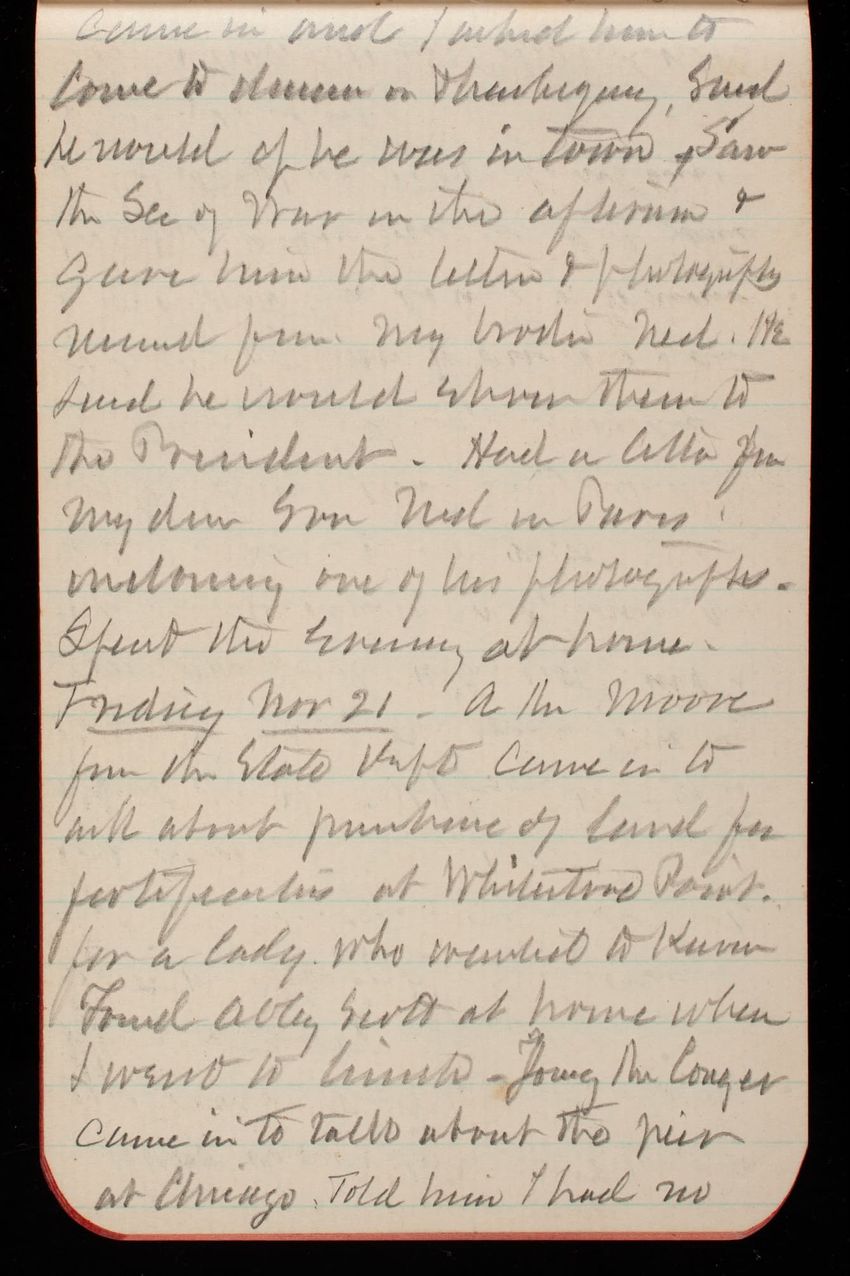 came in and I asked him to
come to dinner on Thanksgiving, Said
he would if he was in town, Saw
the Sec of War in the afternoon &
gave him the letter & photographs
received from my brother Ned. He
said he would show them to
the President. Had a letter from
my dear Son Ned in Paris
enclosing one of his photographs.
Spent the Evening at home.
Friday Nov 21 - A Moore
from the State Dept came in to
ask about purchase of land for
fortification at Whitestone Point.
for a lady who wanted to know
Found Abby Scott at home when
I went to lunch - the
came in to talk about the pier
at Chicago. Told him I had no